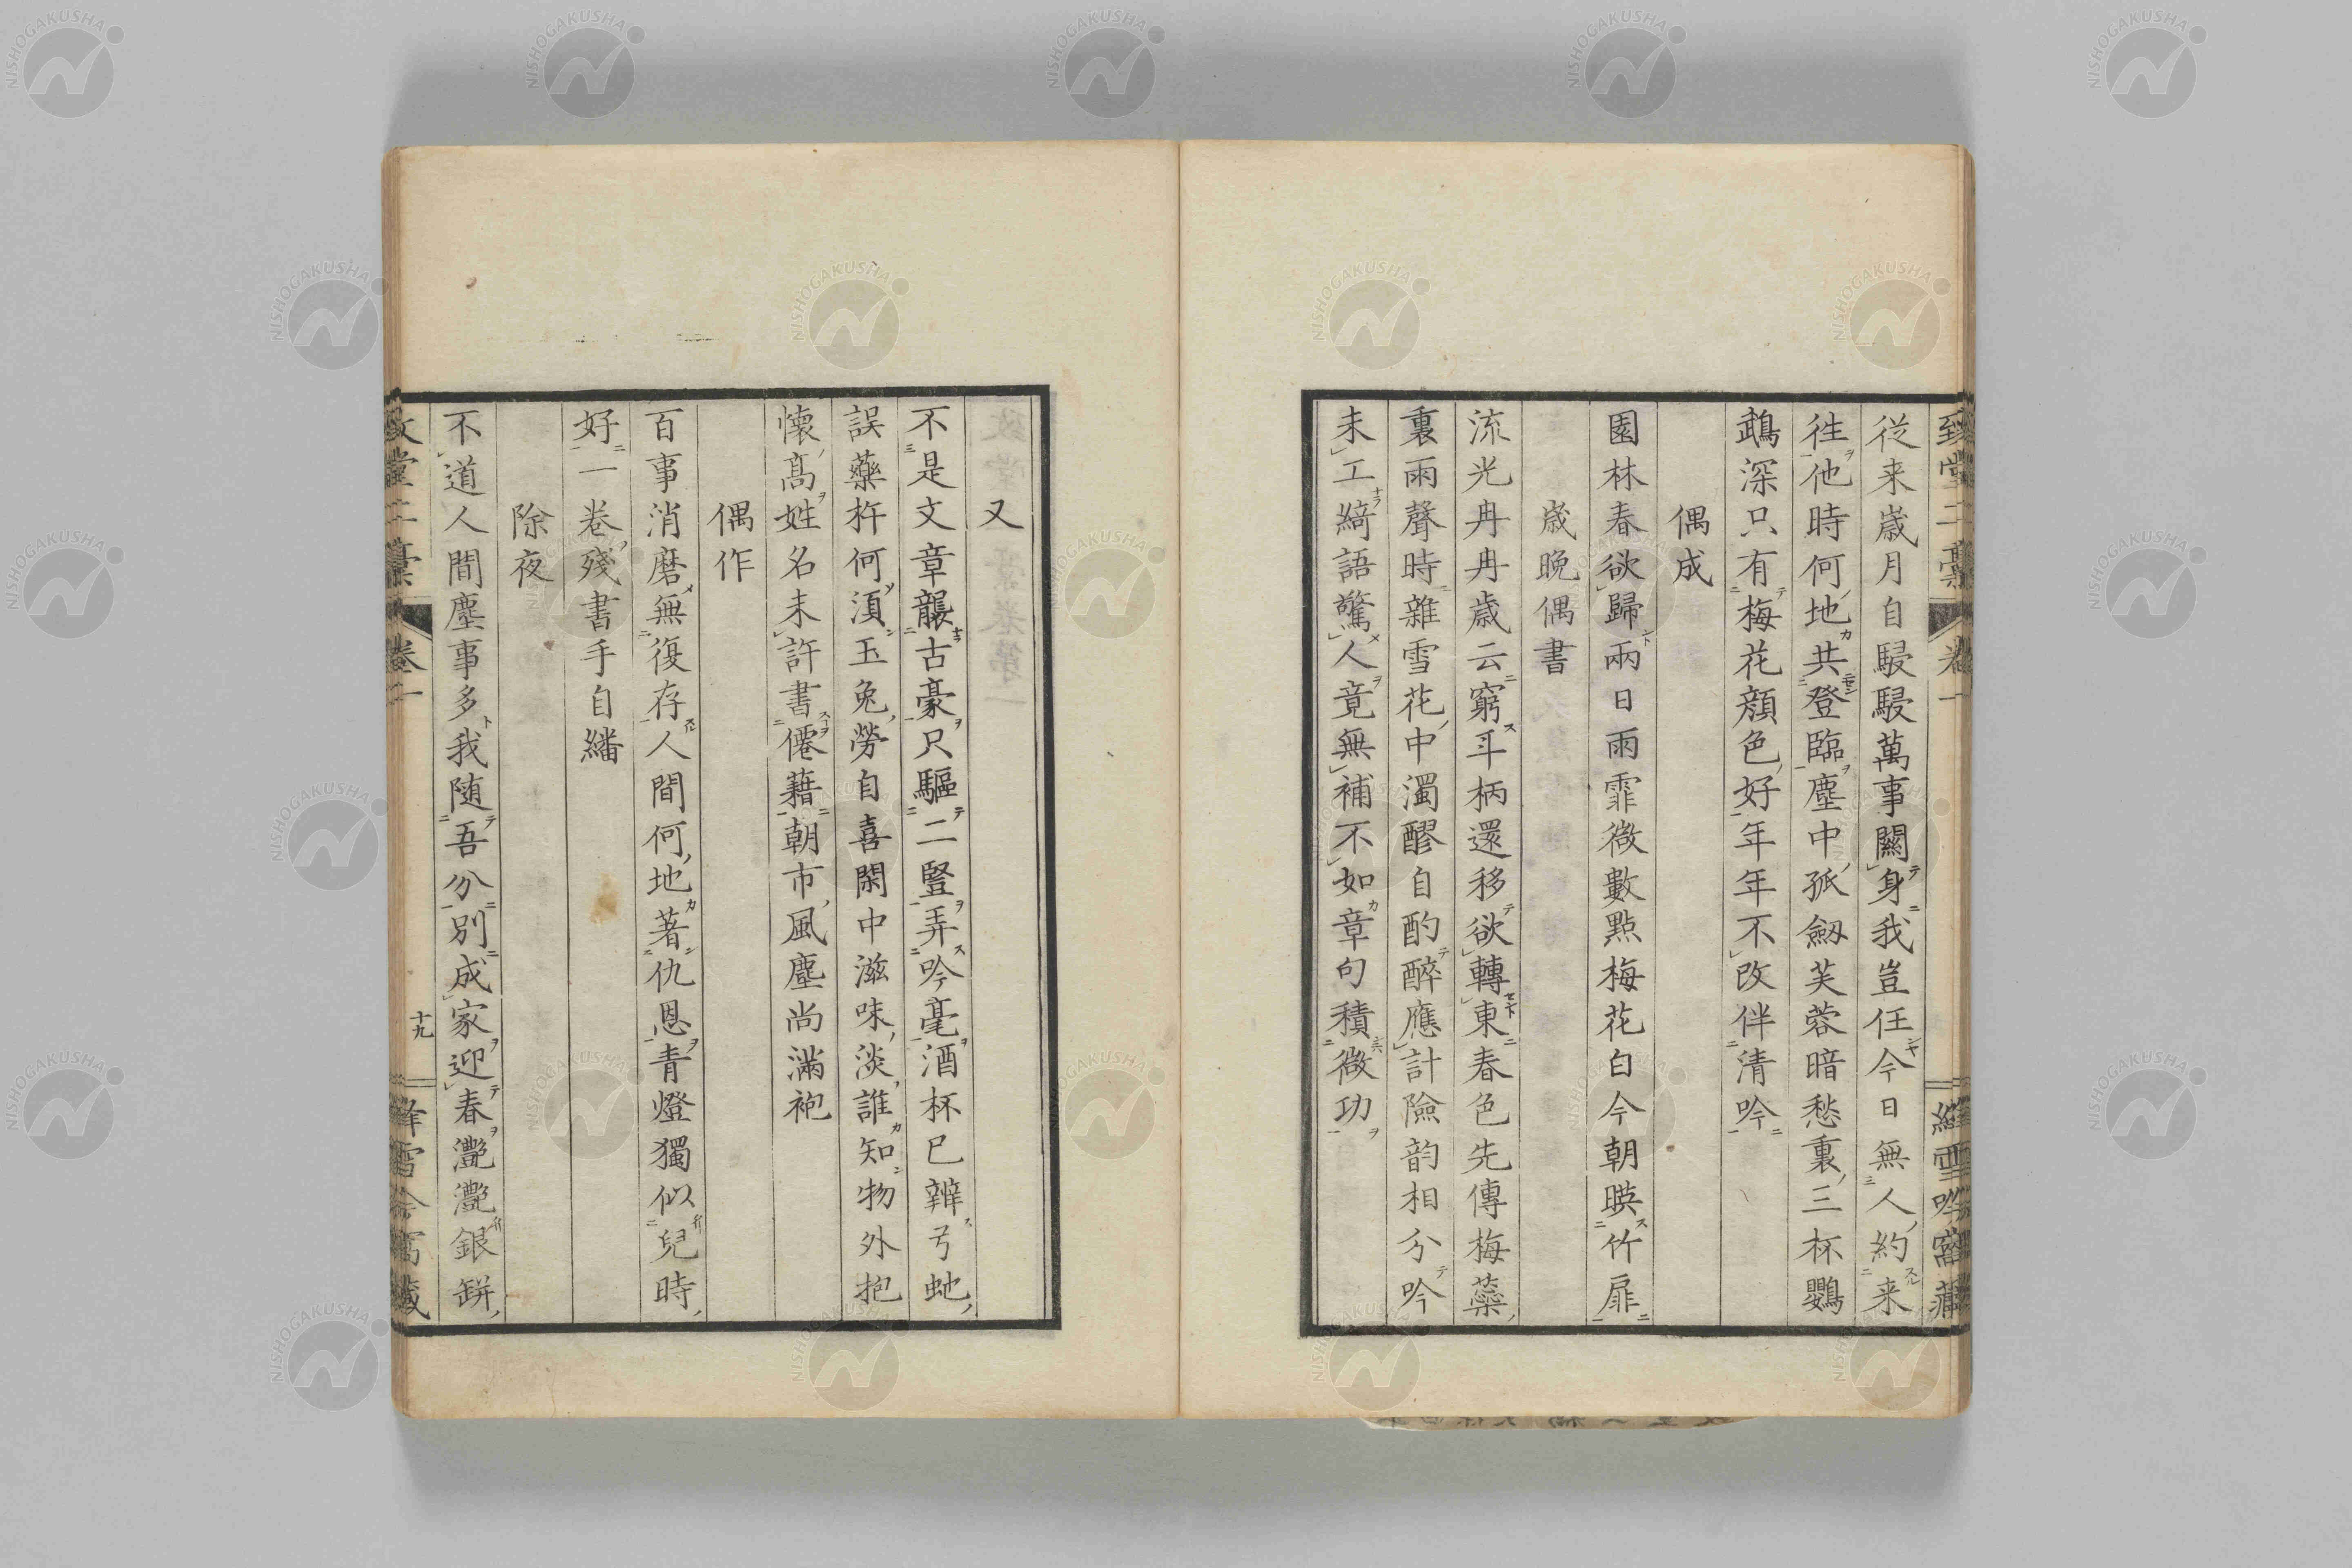 從来歳月自駸駸萬事關身我豈任今日無人約来
徃他時何地共登臨塵中孤劔芙蓉暗愁裏三杯鸚
鵡深只有梅花顔色好年年不改伴清吟
偶成
園林春欲歸兩日雨霏微數點梅花白今朝暎竹扉
歳晩偶書
流光冉冉歳云窮斗柄還移欲轉東春色先傳梅蘂
裏雨聲時雜雪花中濁醪自酌醉應計險韵相分吟
未工綺語驚人竟無補不如章句積微功
又
不是文章龔古豪只驅二豎弄吟毫酒杯已辨弓虵
誤藥杵何湏玉兔勞自喜閑中滋味淡誰知物外抱
懐髙姓名未許書僊藉朝市風塵尚滿袍
偶作
百事消磨無復存人間何地著仇恩青燈獨似兒時
好一卷殘書手自繙
除夜
不道人間塵事多我随吾分別成家迎春灔灔銀缾
卷一
十九
NISHOGAKUSHA